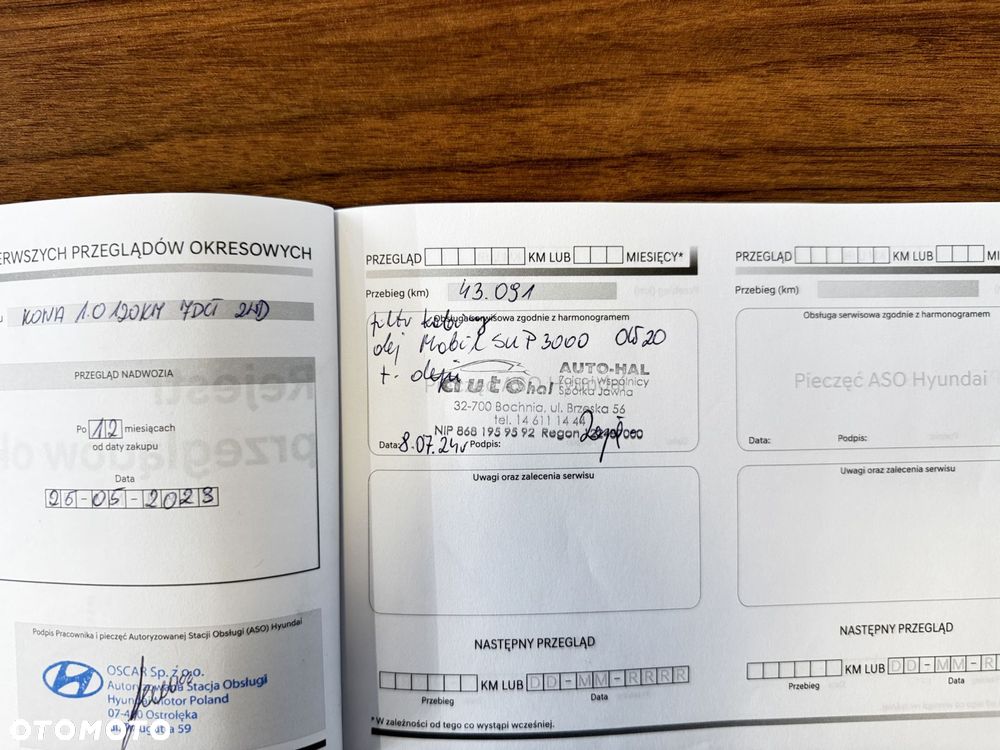 ERWSZYCH PRZEGLĄDÓW OKRESOWYCH
KONA 1.0 120KM 7DCT 2WD
PRZEGLĄD NADWOZIA
Po 12 miesiącach
od daty zakupu
Data
26-05-2023
Podpis Pracownika i pieczęć Autoryzowanej Stacji Obsługi (ASO) Hyundai
OSCAR Sp. z o.o.
Autoryzowana Stacja Obsługi
Hyundai Motor Poland
07-410 Ostrołęka
OTOMOTO
PRZEGLĄD KM LUB MIESIĘCY*
Przebieg (km) 43.091
Obsługa serwisowa zgodnie z harmonogramem
filtr
olej Mobil SUP 3000 0W20
+
autohal AUTO-HAL
Zając i Wspólnicy
Spółka Jawna
32-700 Bochnia, ul. Brzeska 56
tel. 14 611 14 44
NIP 868 195 95 92 Regon
Data: 8.07.24r Podpis:
Uwagi oraz zalecenia serwisu
NASTĘPNY PRZEGLĄD
KM LUB DD-MM-RRRR
Przebieg Data
*W zależności od tego co wystąpi wcześniej.
PRZEGLĄD KM LUB MI
Przebieg (km)
Obsługa serwisowa zgodnie z harmonogramem
Pieczęć ASO Hyundai
Data: Podpis:
Uwagi oraz zalecenia serwisu
NASTĘPNY PRZEGLĄD
KM LUB DD-MM-R
Przebieg Data